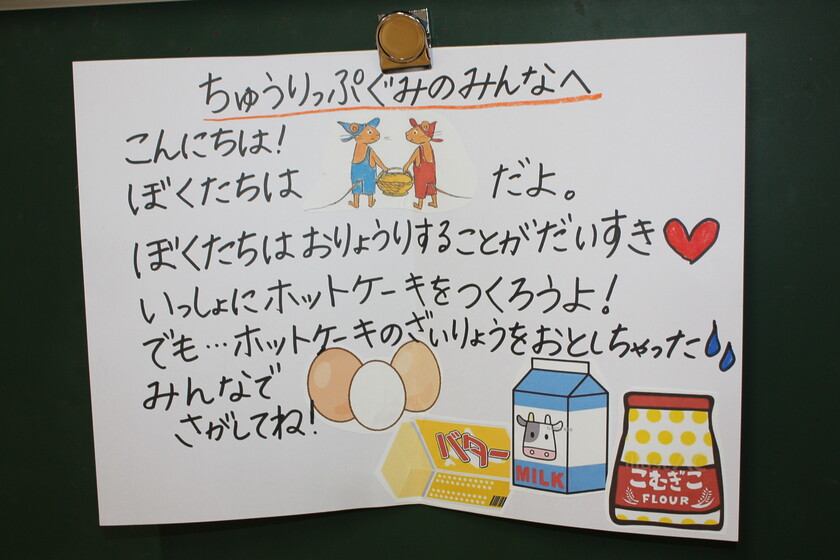 ちゅうりっぷぐみのみんなへ
こんにちは!
ぼくたちは だよ。
ぼくたちはおりょうりすることがだいすき
いっしょにホットケーキをつくろうよ!
でも…ホットケーキのざいりょうをおとしちゃった
みんなで
さがしてね!
バター
MILK
こむぎこ
FLOUR